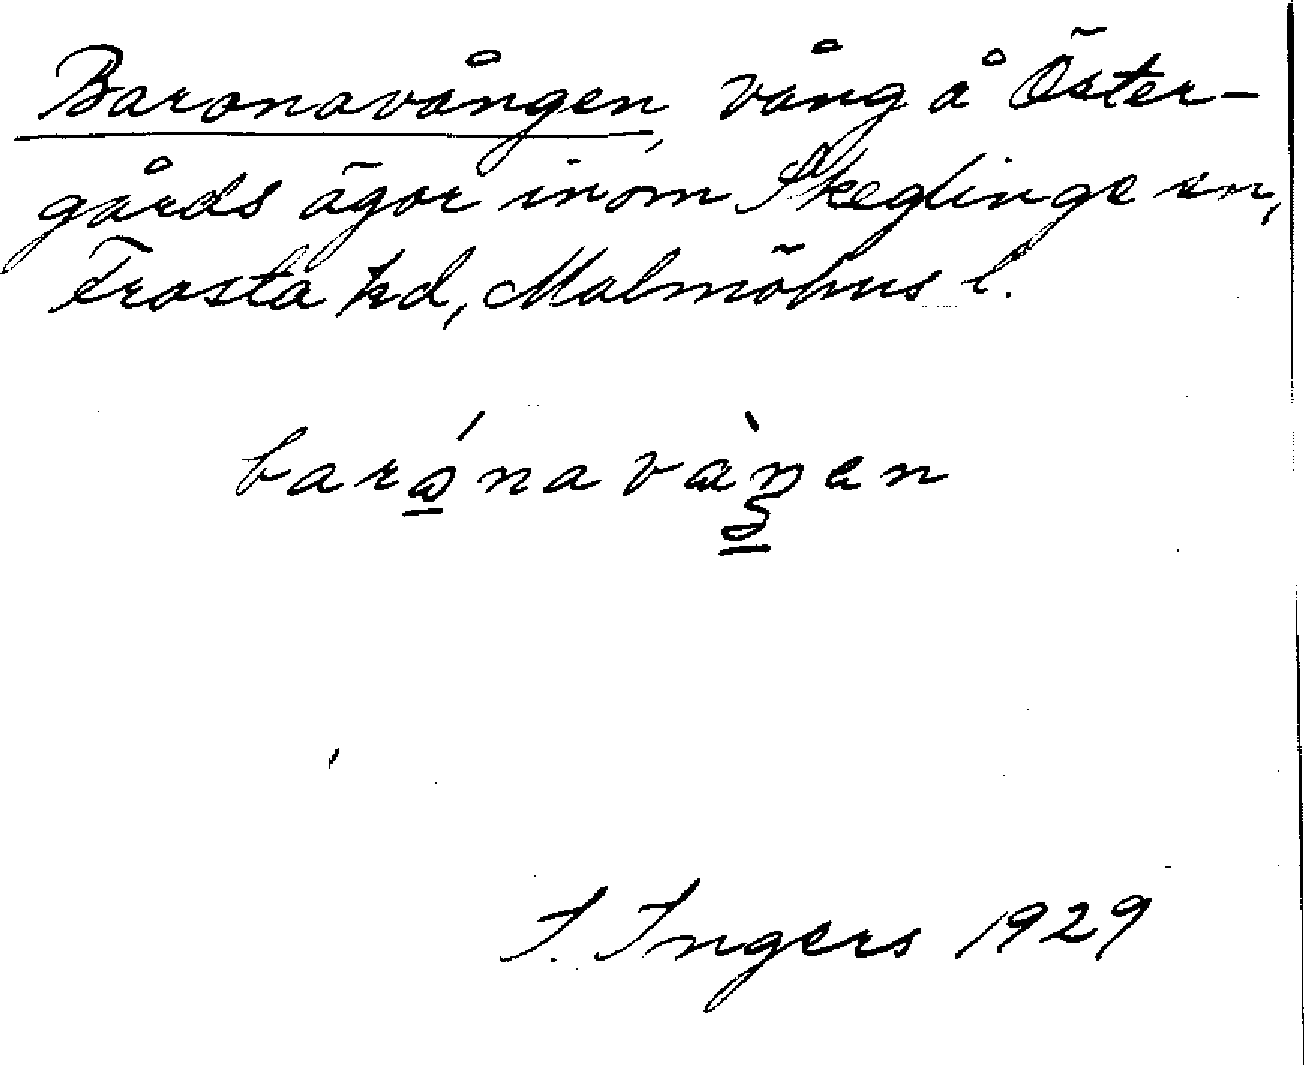 Baronavången, vång å Öster-
gårds ägor inom Skeglinge sn,
Frosta hd, Malmöhus l.
I. Ingers 1929